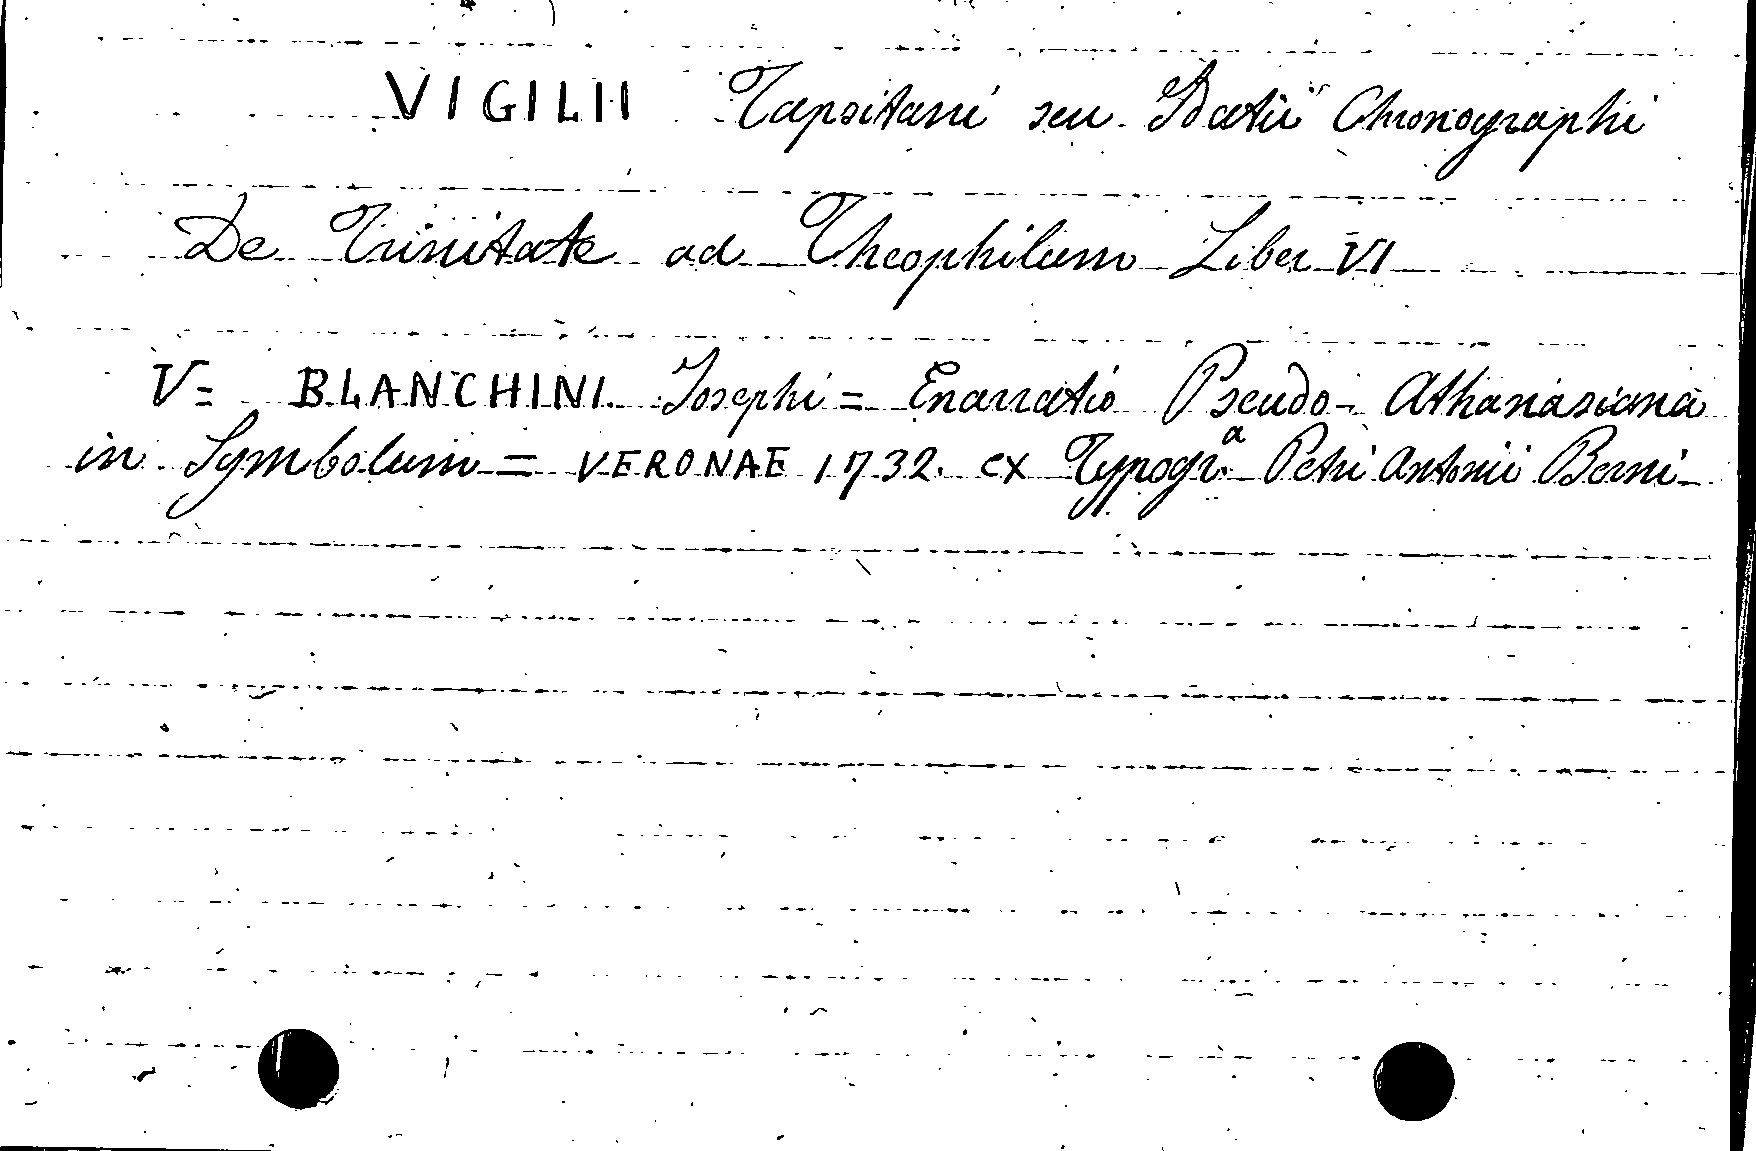 VIGILII Tapsitani seu Idatii Chronographi
De Trinitate ad Theophilum Liber VI
V= BLANCHINI Josephi= Enarratio Pseudo-Athanasiana
in Symbolum= VERONAE 1732. ex Typogr.ª Petri Antonii Berni-